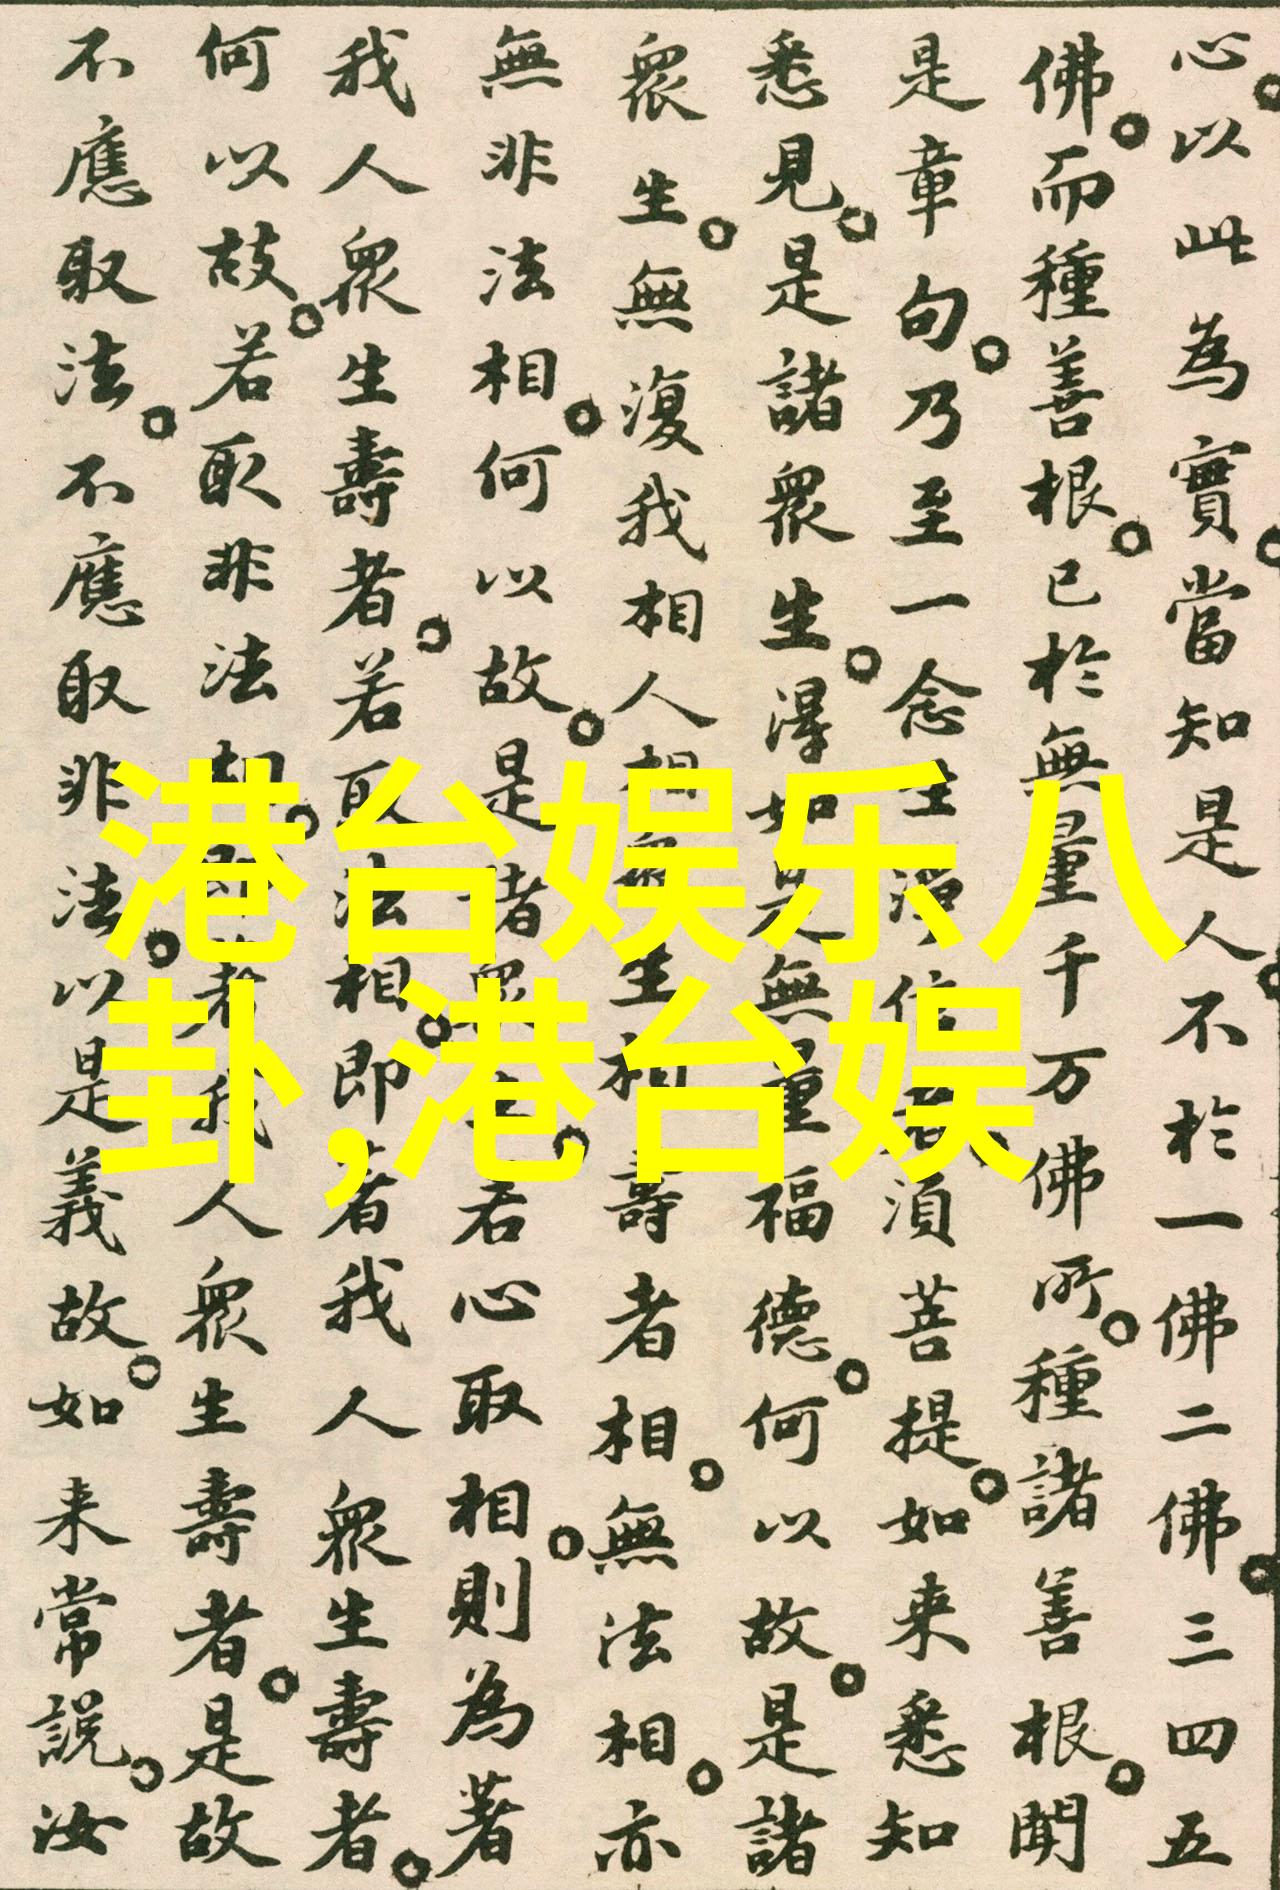 心以此為實當知是人不於一佛二佛三四五
佛而種善根已於無量千万佛所種諸善根聞
是章句乃至一念生淨信者須菩提如来悉知
悉見是諸衆生淂如是無量福德何以故是諸
衆生無復我相人相衆生相壽者相無法相亦
無非法相何以故是諸衆生若心取相則為著
我人衆生壽者若取法相即著我人衆生壽者
何以故若取非法相即著我人衆生壽者是故
不應取法不應取非法以是義故如来常説汝
港台娱乐八
卦,港台娱